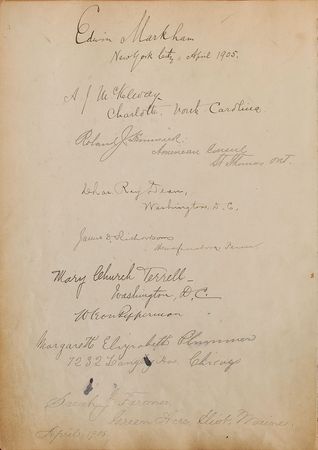 Edwin Markham
New York City, April 1905.
A J McKelway
Charlotte, North Carolina
Robert J.
American Consul
St Thomas Ont.
Chas. Ray Dean,
Washington, D.C.
James D. Richardson
Murfreesboro Tenn
Mary Church Terrell
Washington, D.C.
W Pepperman
Margareth Elizabeth Plummer
7232 Ave, Chicago
Sarah J. Farmer
Green Acre, Eliot, Maine.
April, 1905.